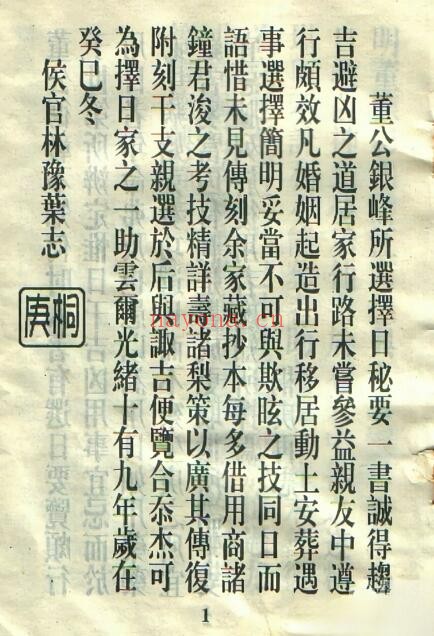 董公銀峰所選擇日秘要一書誠得趨
吉避凶之道居家行路未嘗參益親友中遵
行頗效凡婚姻起造出行移居動土安葬遇
事選擇簡明妥當不可與欺眩之技同日而
語惜未見傳刻余家藏抄本每多借用商諸
鐘君浚之考技精詳壽諸梨策以廣其傳復
附刻干支親選於后與諏吉便覽合忝杰可
為擇日家之一助雲爾光緒十有九年歲在
癸巳冬
侯官林豫葉志
桐
1